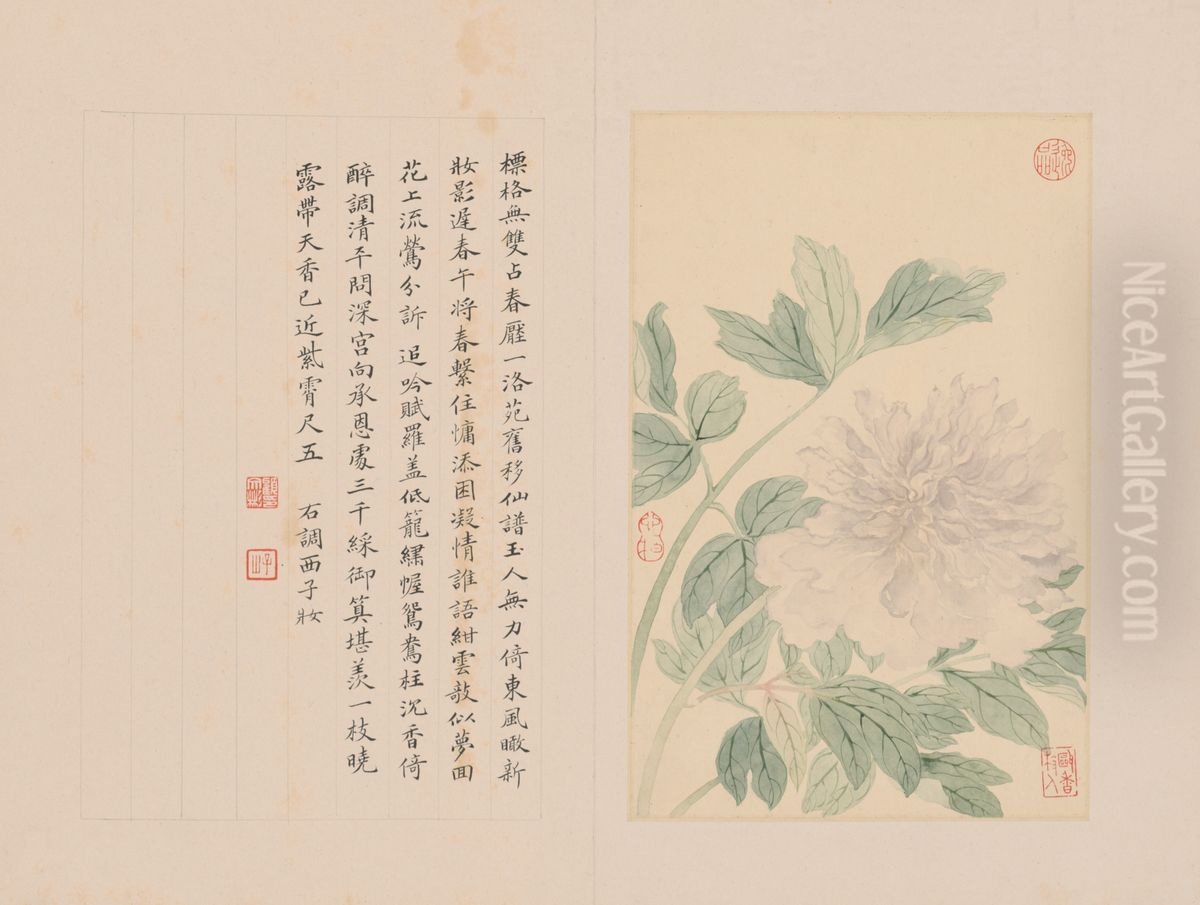 標格無雙占春壓一洛苑舊移仙譜玉人無力倚東風瞰新
妝影遲春午將春繫住慵添困凝情誰語紺雲敲似夢回
花上流鶯分訴 追吟賦羅蓋低籠繡幄鴛鴦柱沉香倚
醉調清平問深宮向承恩處三千綵御算堪羨一枝曉
露帶天香已近紫霄尺五 右調西子妝
NiceArtGallery.com